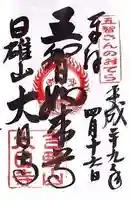 五智さんのみてら
平成二十九年
四月十六日
奉拝
五智如来
日雄山 大日寺